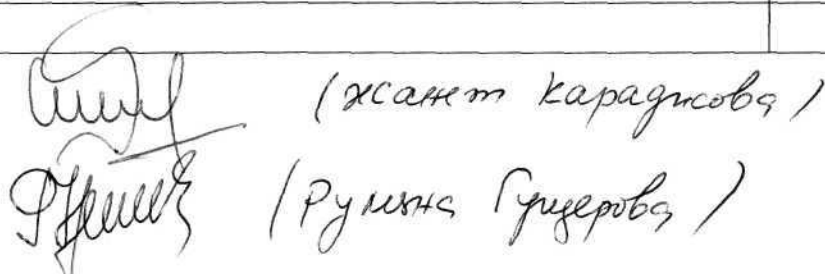 (Жанет Караджова)
(Румяна Гущерова)